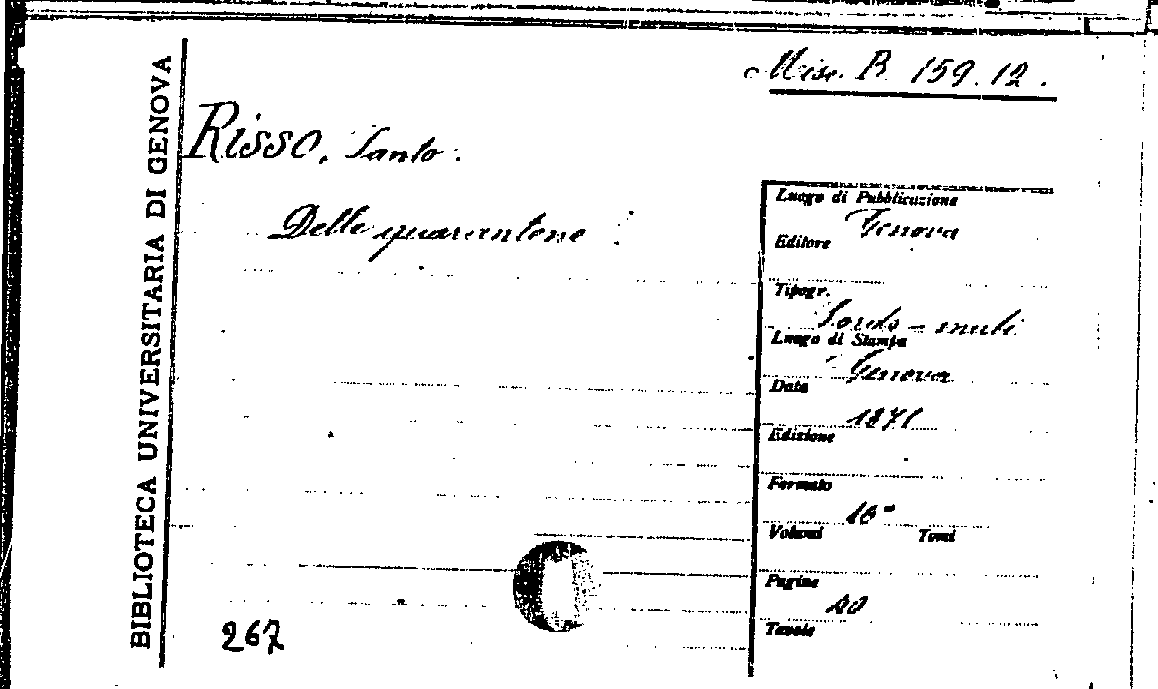 BIBLIOTECA UNIVERSITARIA DI GENOVA
Misc. B. 159.12.
Risso, Santo.
Delle quarantene
Luogo di Pubblicazione
Genova
Editore
Tipogr.
Sordo-muti
Luogo di Stampa
Genova
Data
1871
Edizione
Formato
16º
Volumi Tomi
Pagine
20
Tavole
267